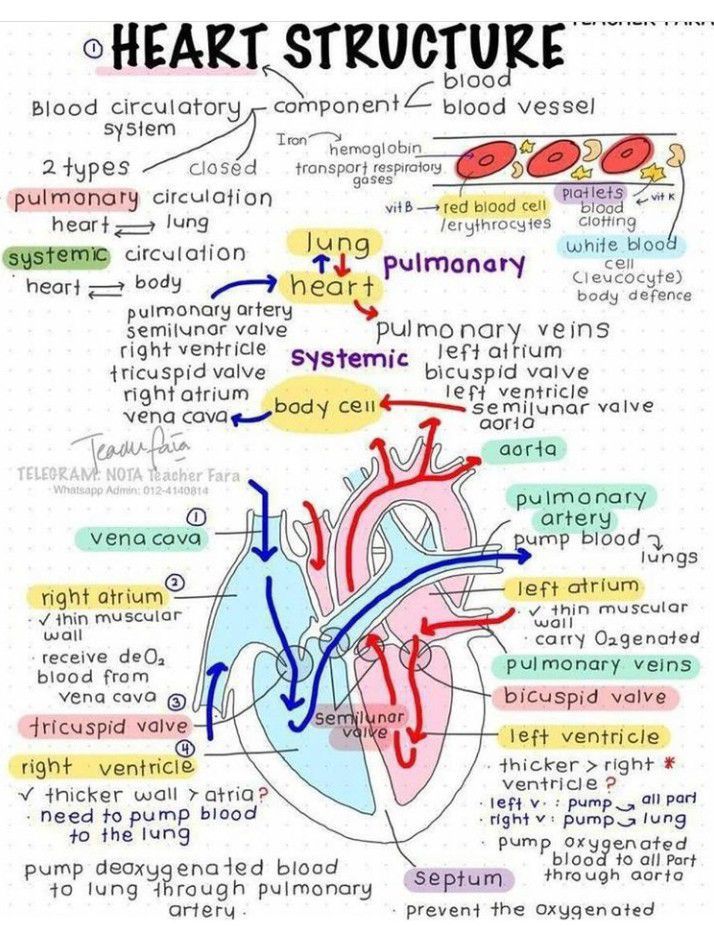 ① HEART STRUCTURE
Blood circulatory system
component
blood
blood vessel
2 types
closed
pulmonary circulation
heart ⇌ lung
systemic circulation
heart ⇌ body
Iron
hemoglobin
transport respiratory
gases
vit B → red blood cell
/erythrocytes
Platlets
blood
clotting
vit K
white blood
cell
(leucocyte)
body defence
lung
pulmonary
heart
pulmonary artery
semilunar valve
right ventricle
tricuspid valve
right atrium
vena cava
systemic
body cell
pulmonary veins
left atrium
bicuspid valve
left ventricle
semilunar valve
aorta
Teacher Fara
TELEGRAM: NOTA Teacher Fara
Whatsapp Admin: 012-4140814
aorta
①
vena cava
pulmonary
artery
pump blood
lungs
②
right atrium
✓ thin muscular
wall
· receive deO2
blood from
vena cava
left atrium
✓ thin muscular
wall
· carry O2genated
pulmonary veins
③
tricuspid valve
semilunar
valve
bicuspid valve
④
right ventricle
✓ thicker wall > atria?
· need to pump blood
to the lung
pump deoxygenated blood
to lung through pulmonary
artery.
left ventricle
· thicker > right *
ventricle ?
· left v. : pump → all part
· right v : pump → lung
· pump oxygenated
blood to all Part
through aorta
septum
· prevent the oxygenated